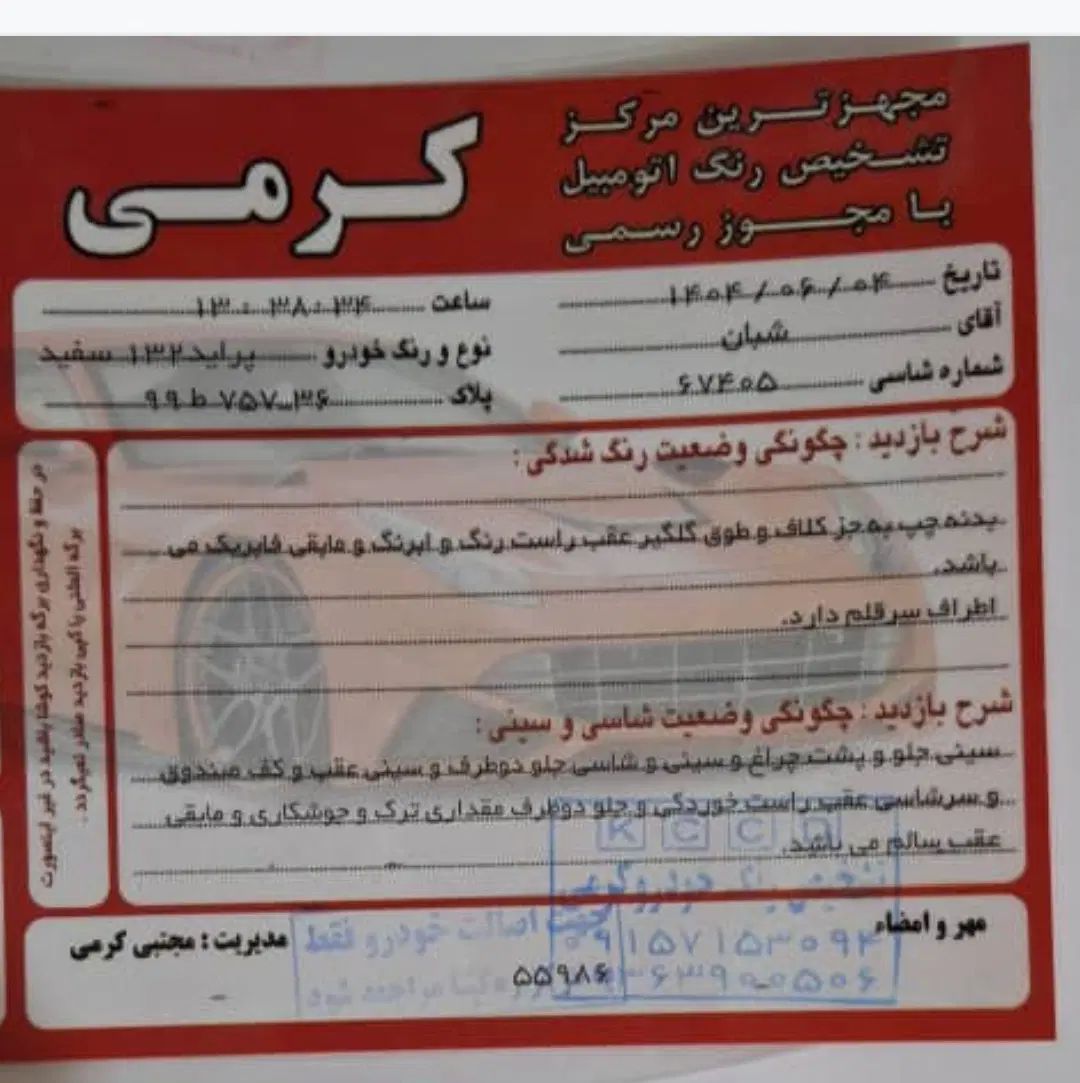 مجهزترین مرکز
تشخیص رنگ اتومبیل
با مجوز رسمی
کرمی
تاریخ ۱۴۰۴/۰۶/۰۴
ساعت ۱۳:۳۸:۳۴
آقای شبان
نوع و رنگ خودرو پراید۱۳۲ سفید
شماره شاسی ۶۷۴۰۵
پلاک ۹۹ ط ۷۵۷_۳۶
شرح بازدید : چگونگی وضعیت رنگ شدگی :
بدنه چپ به جز کلاف و طوق گلگیر عقب راست رنگ و ابرنگ و مابقی فابریک می
باشد.
اطراف سرقلم دارد.
شرح بازدید : چگونگی وضعیت شاسی و سینی :
سینی جلو و پشت چراغ و سینی و شاسی جلو دوطرف و سینی عقب و کف صندوق
و سرشاسی عقب راست خوردگی و جلو دوطرف مقداری ترک و جوشکاری و مابقی
عقب سالم می باشد.
در حفظ و نگهداری برگه بازدید کوشا باشید در غیر اینصورت
برگه المثنی یا کپی بازدید صادر نمیگردد .
مهر و امضاء
مدیریت : مجتبی کرمی
KCCO
جهت اصالت خودرو فقط
۰۹۱۵۷۱۵۳۰۹۴
۵۵۹۸۶